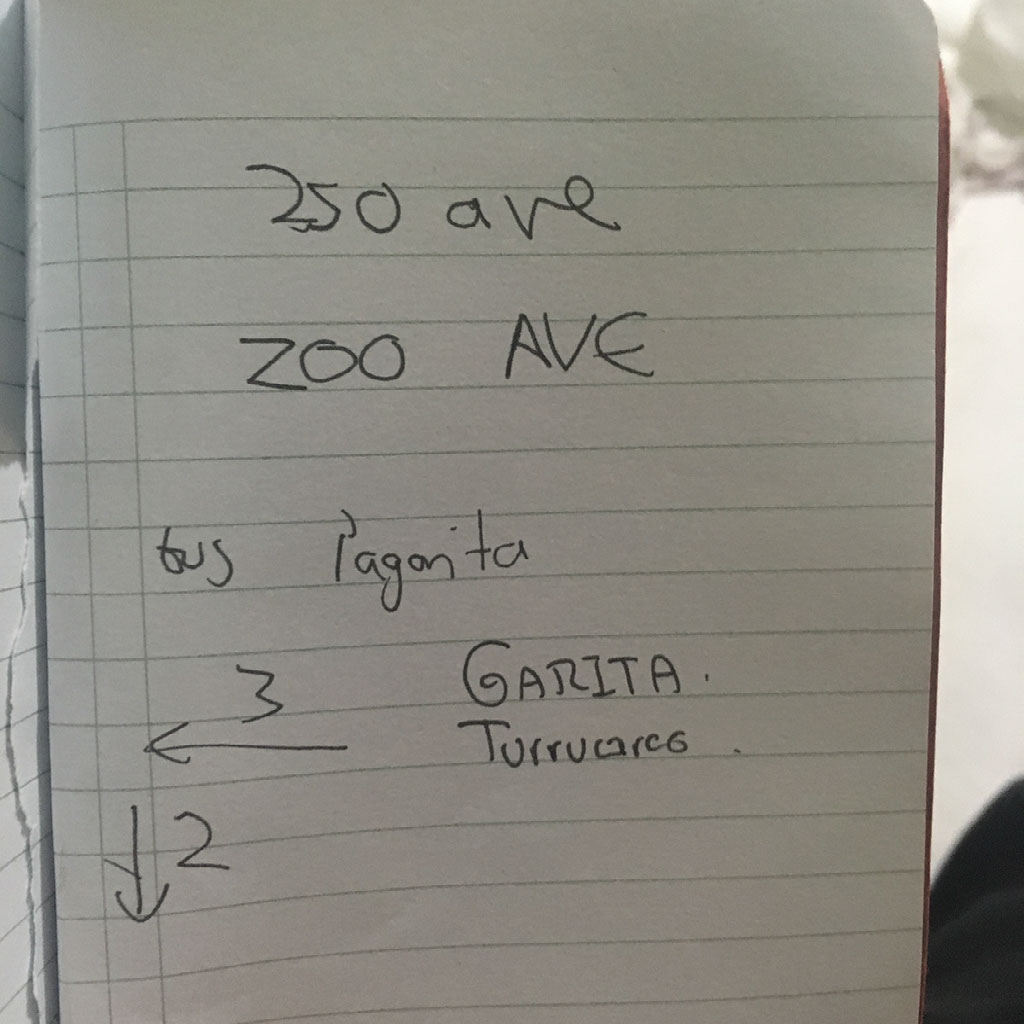 250 ave
ZOO AVE
bus Pagarita
3 GARITA.
← Turrucares.
↓ 2